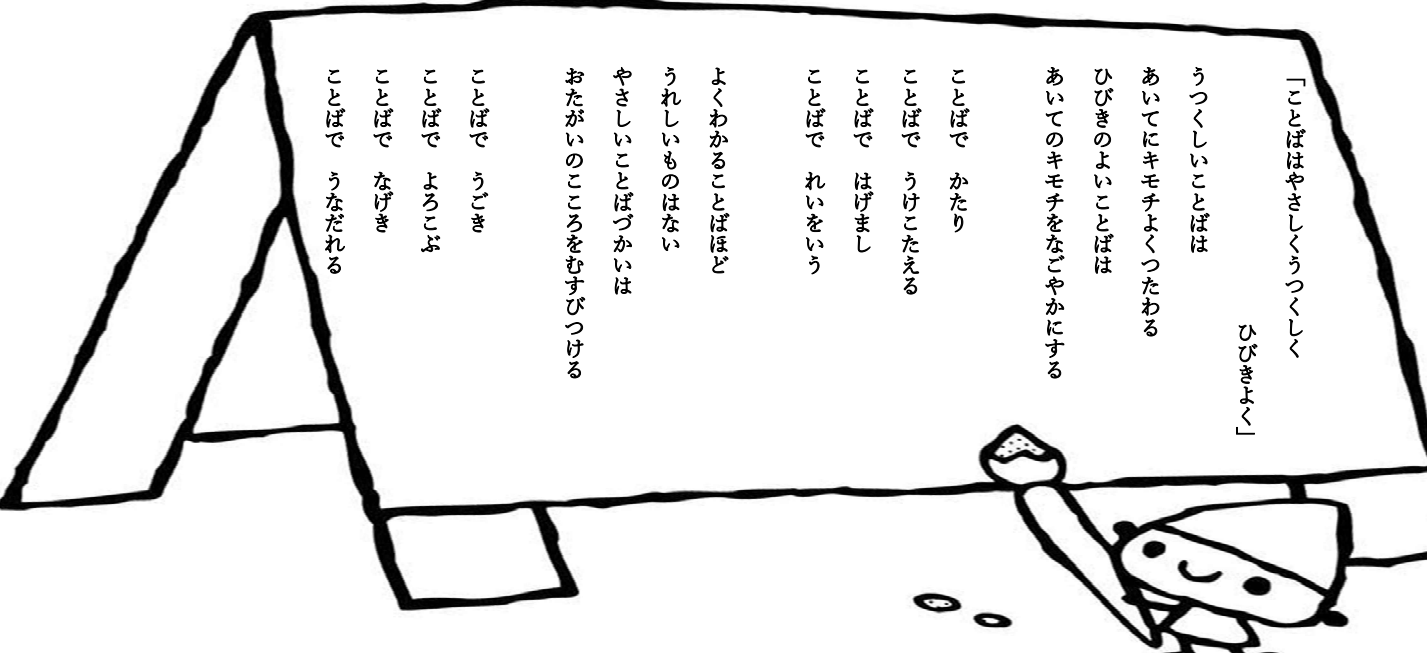 「ことばはやさしくうつくしく
ひびきよく」
うつくしいことばは
あいてにキモチよくつたわる
ひびきのよいことばは
あいてのキモチをなごやかにする
ことばで　かたり
ことばで　うけこたえる
ことばで　はげまし
ことばで　れいをいう
よくわかることばほど
うれしいものはない
やさしいことばづかいは
おたがいのこころをむすびつける
ことばで　うごき
ことばで　よろこぶ
ことばで　なげき
ことばで　うなだれる